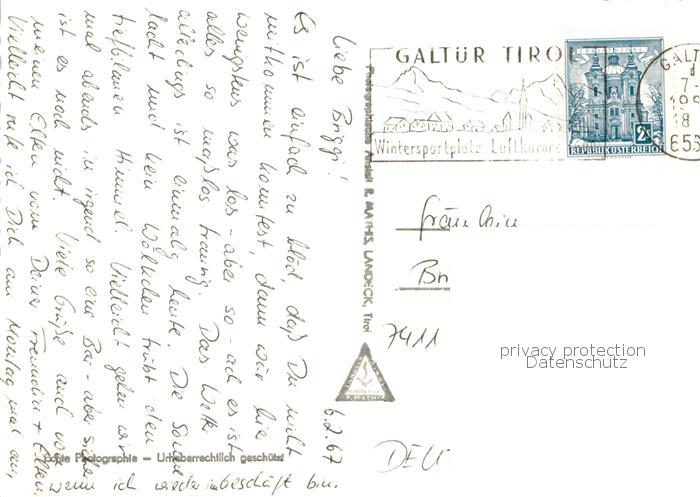 6.2.67
Liebe Briggi!
Es ist einfach zu blöd, daß Du nicht
mitkommen konntest, dann wär hie
wenigstens was los - aber so - ach es ist
alles so maßlos traurig. Das Wetter
allerdings ist einmalig heute. Die Sonne
lacht und kein Wölkchen trübt den
tiefblauen Himmel. Vielleicht gehen wir
mal abends in irgend so eine Bar - aber sicher
ist es noch nicht. Viele Grüße auch von
meinen Eltern von Deiner Freundin + Eltern.
Vielleicht rufe ich Dich am Montag mal an,
wenn ich wieder im beschäft bin.
Echte Photographie – Urheberrechtlich geschützt
Photographische Anstalt R. MATHIS, LANDECK, Tirol
R. MATHIS
GALTÜR TIROL
Wintersportplatz Luftkurort
2S
REPUBLIK ÖSTERREICH
GALT
7.-
19
18
656
Fräulein
Br
7411
DEU
privacy protection
Datenschutz